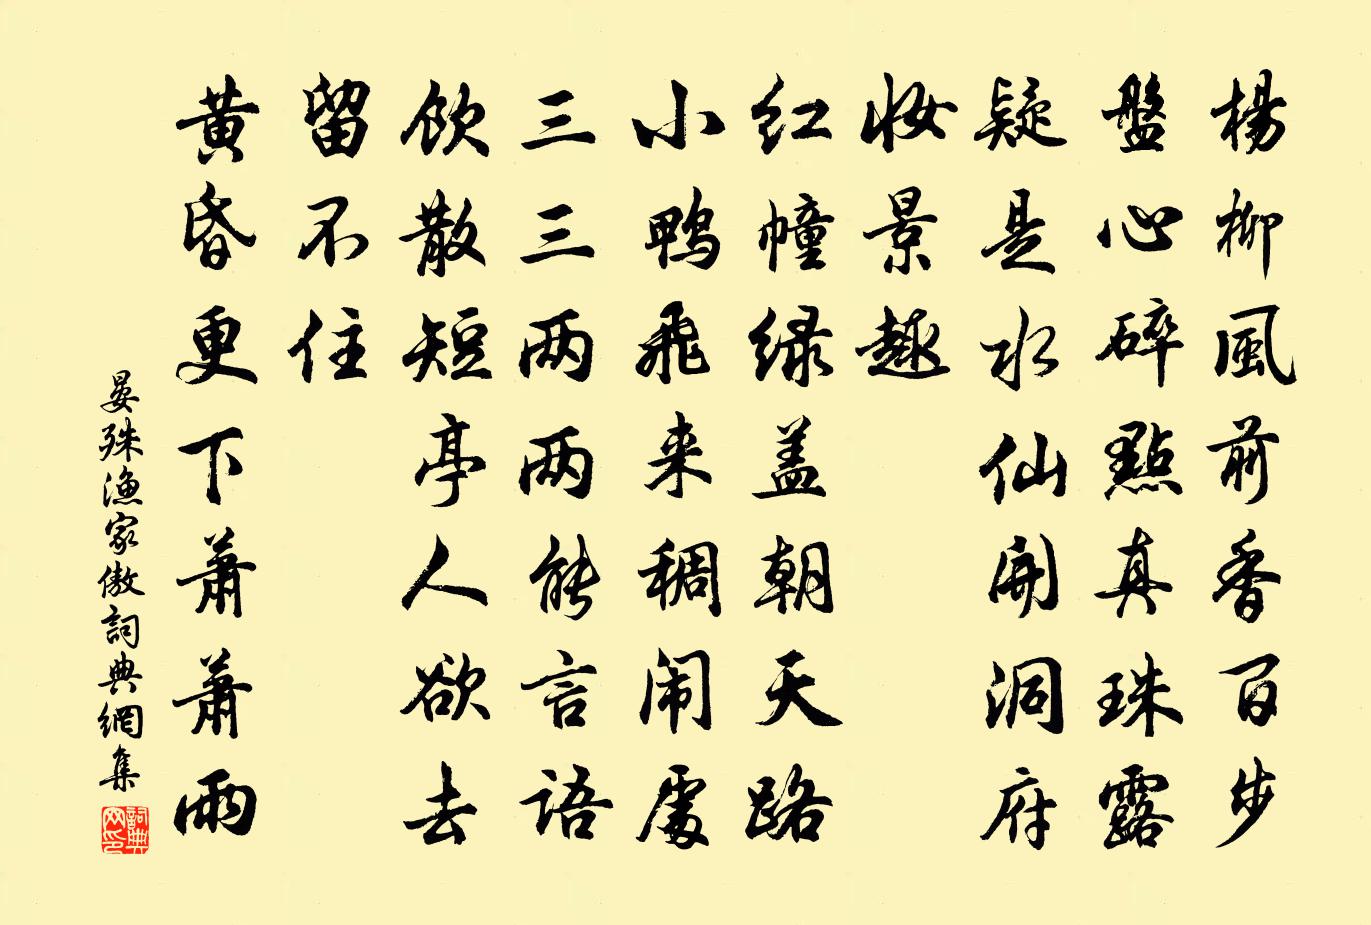 楊柳風前香百步
盤心碎點真珠露
疑是水仙開洞府
妝景趣
红幢绿盖朝天路
小鸭飛来稠闹處
三三两两能言語
飲散短亭人欲去
留不住
黃昏更下萧萧雨
晏殊漁家傲詞典網集
詞典网印